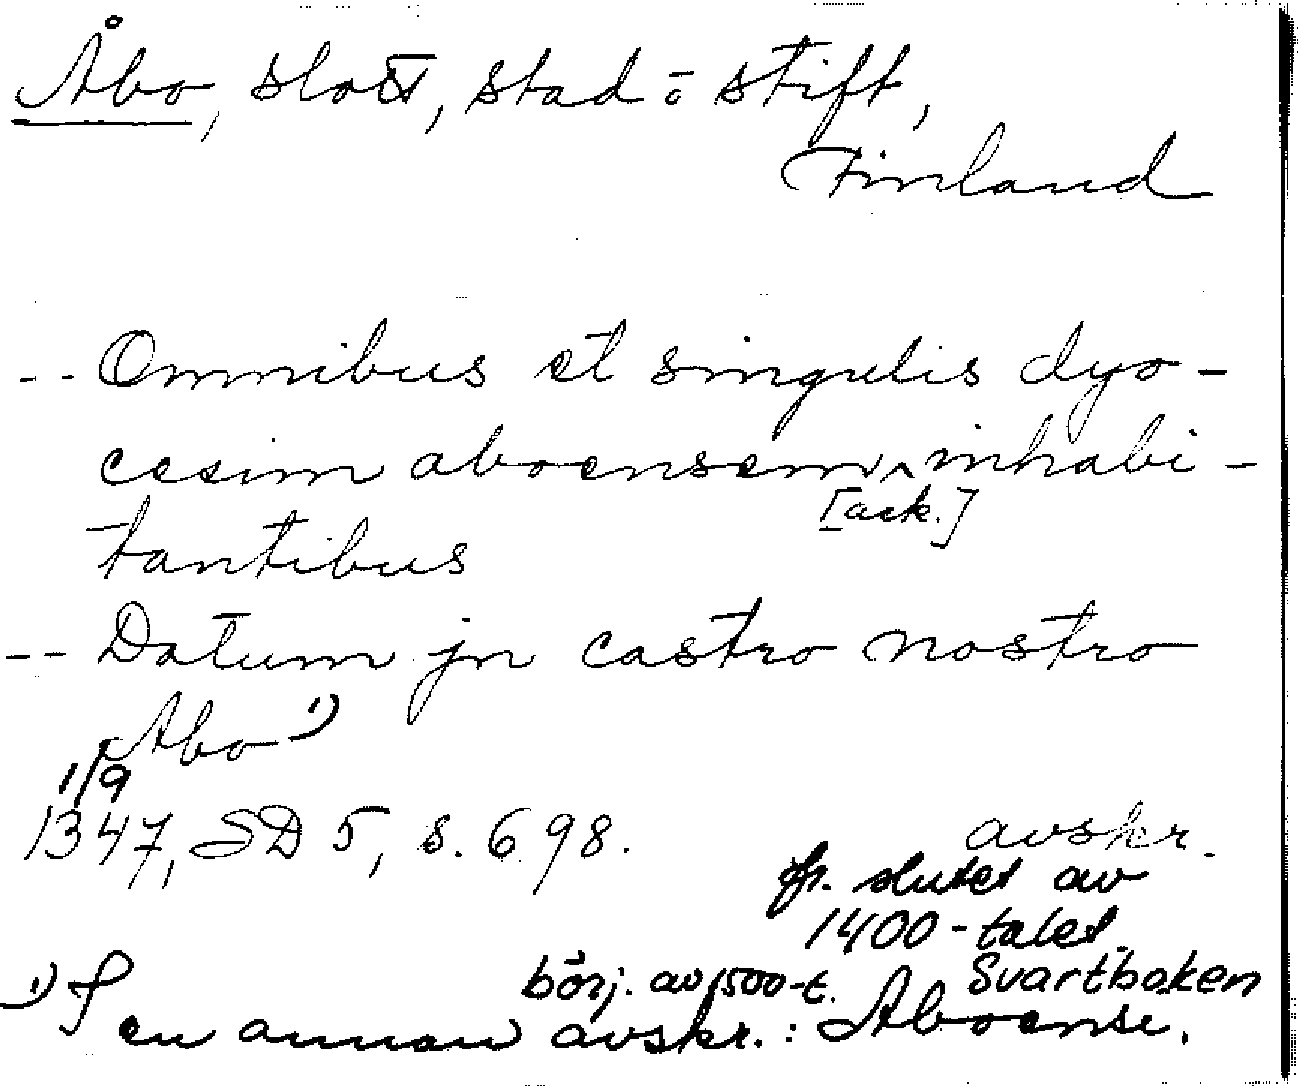 Åbo, slott, stad o stift,
Finland
-- Omnibus et singulis dyo-
cesim aboensem inhabi-
[ack.]
tantibus
-- Datum jn castro nostro
Abo 1)
1/9
1347, SD 5, s. 698.
avskr.
fr. slutet av
1400-talet.
Svartboken
1) I
börj. av 1500-t.
en annan avskr.: Aboensi.